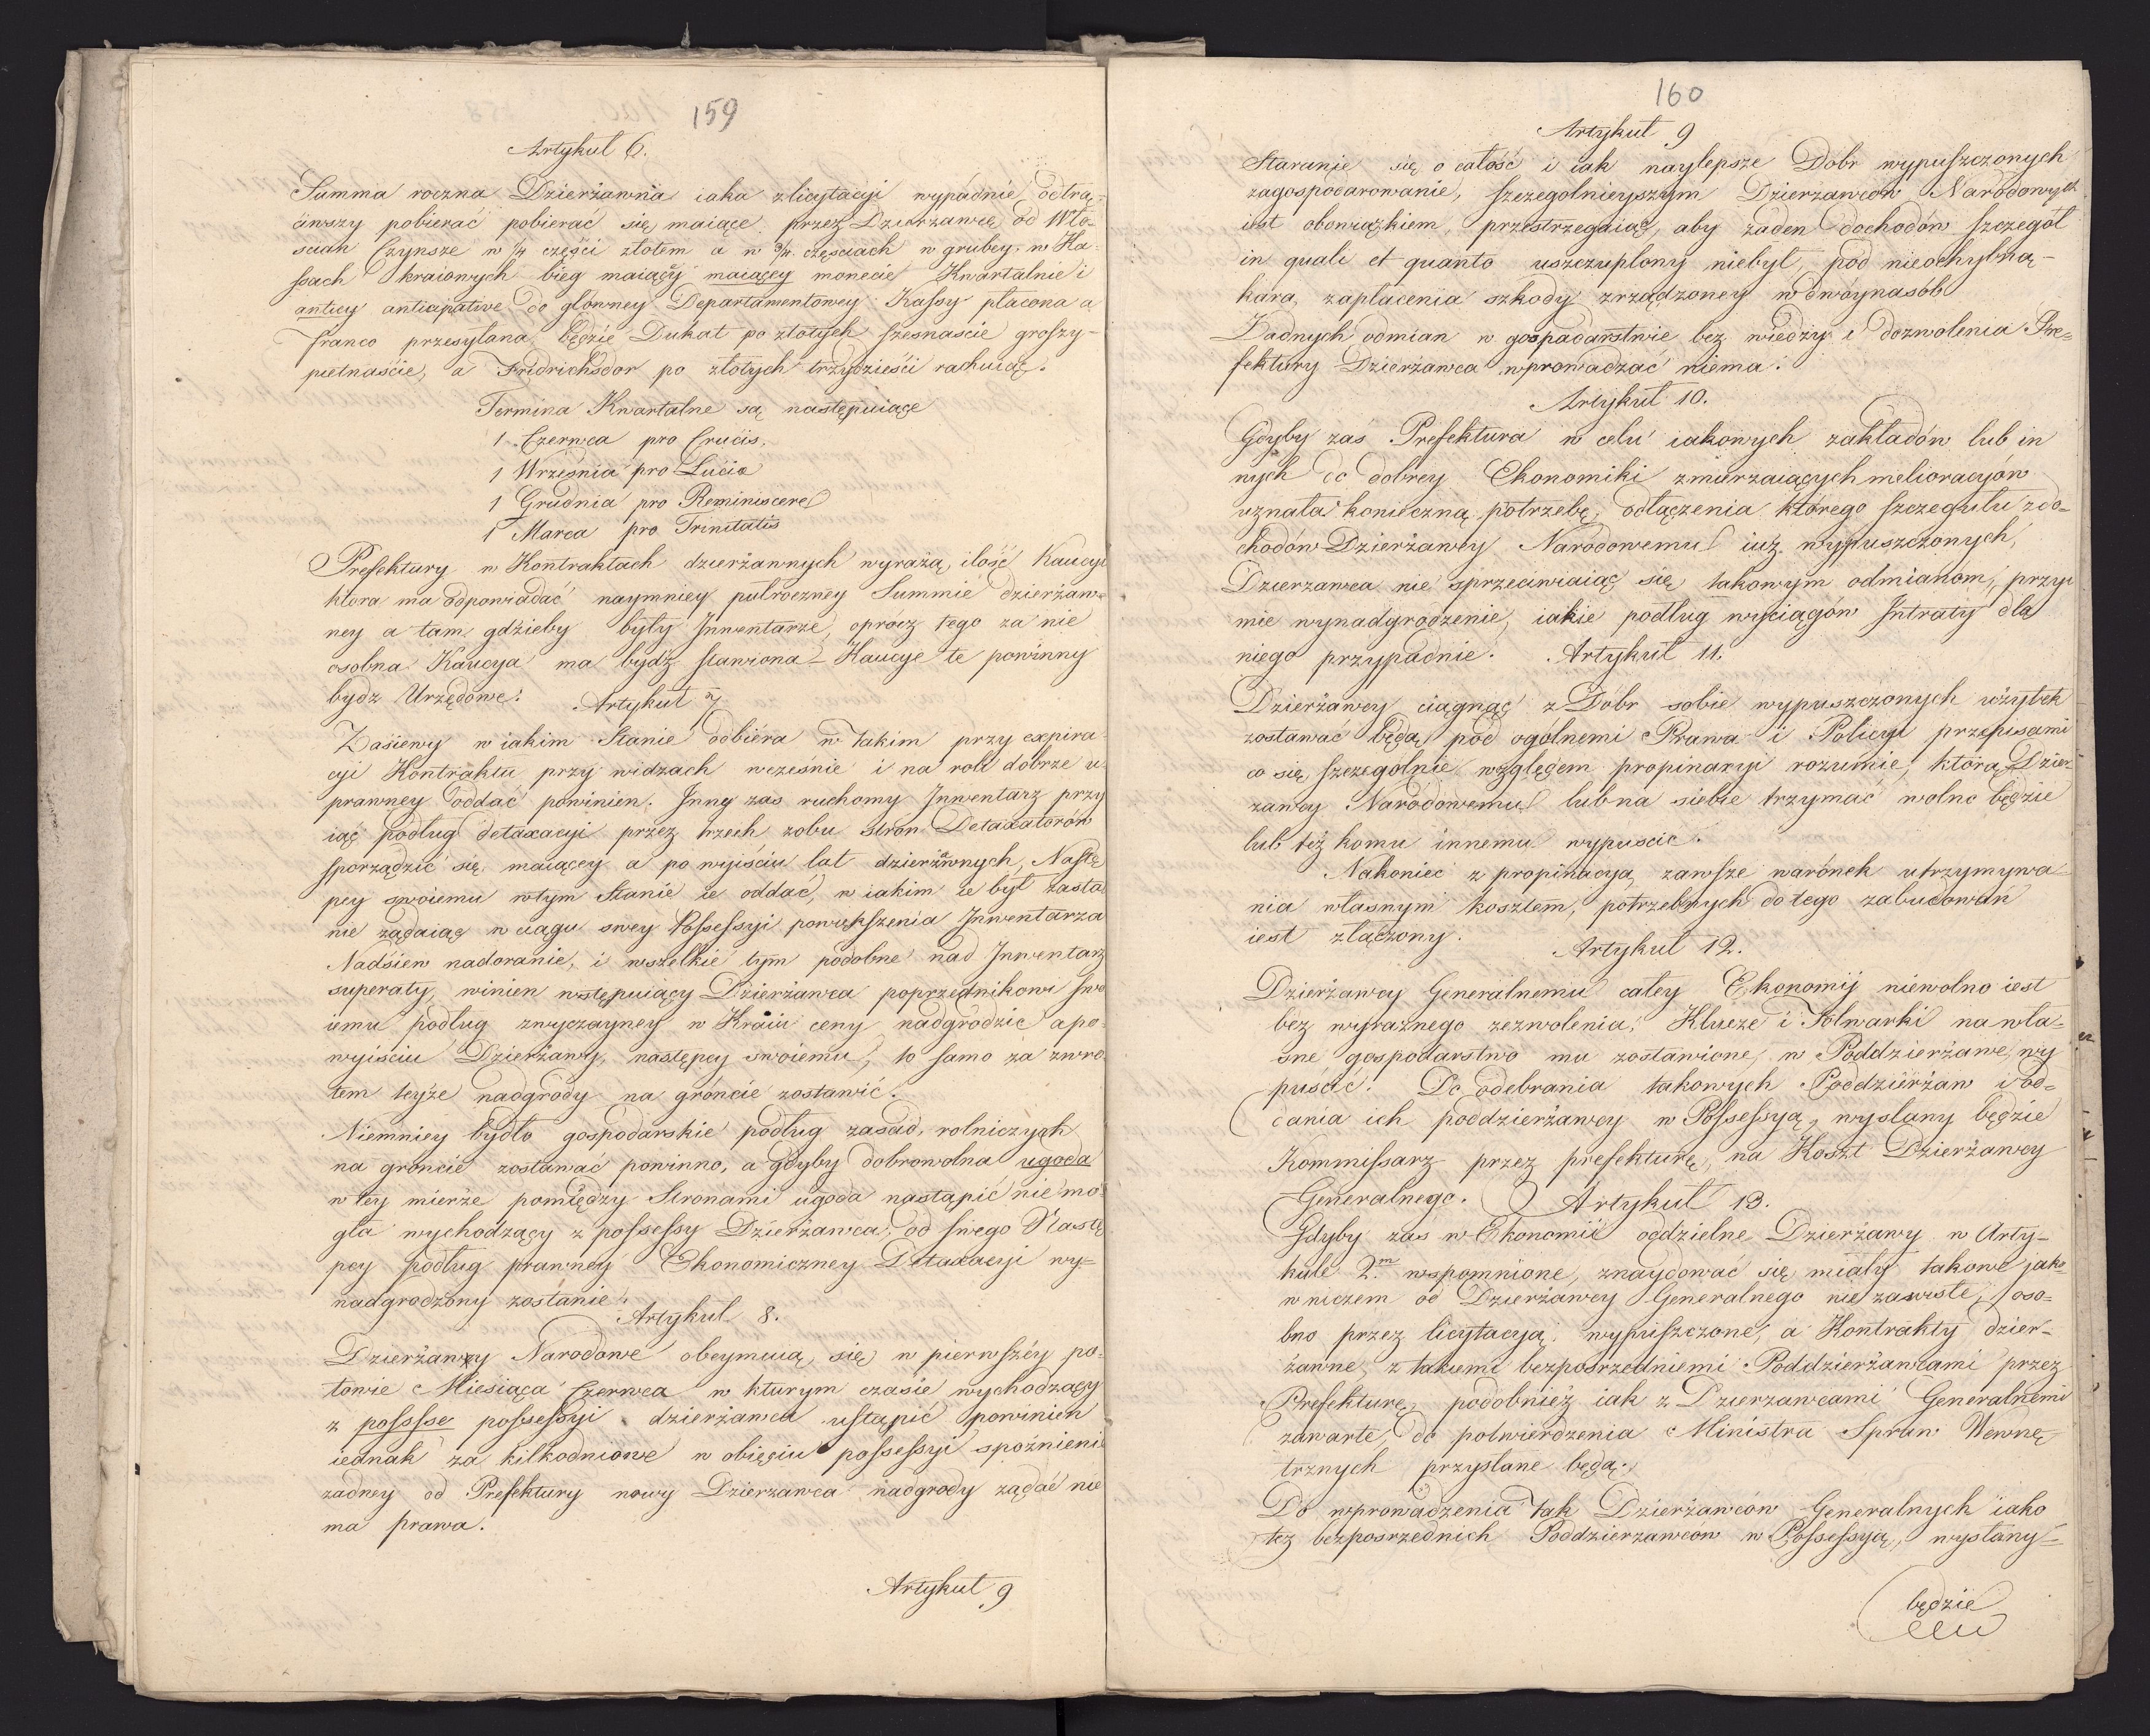 159
Artykuł 6.
Summa roczna Dzierżawna iaka zlicytacyi wypadnie odtrą-
ciwszy pobierać pobierać się maiące przez Dzierżawcę od Wło-
scian Czynsze w 1/4 części złotem a w 3/4 częsciach w grubey, w Ka-
ssach kraiowych bieg maiący maiącey monecie Kwartalnie i
anticy anticipative do głowney Departamentowey Kassy płacona a
franco przesyłana będzie Dukat po złotych szesnascie groszy-
pietnaście, a Fridrichsdor po złotych trzydzieści rachuiąc.
Termina Kwartalne są następuiące
1 Czerwca pro Crucis.
1 Września pro Lucia
1 Grudnia pro Reminiscere
1 Marca pro Trinitatis
Prefektury w Kontraktach dzierżawnych wyrażą, ilość Kaucyi
ktora ma odpowiadać naymniey pułroczney Summie dzierżaw-
ney a tam gdzieby były Inwentarze, oprócz tego za nie
osobna Kaucya ma bydź stawiona – Kaucye te powinny
bydz Urzędowe. Artykuł 7
Zasiewy w iakim Stanie odbiera w takim przy expira
cyi Kontraktu przy widzach wcześnie i na roli dobrze u
prawney oddać powinien. Inny zas ruchomy Inwentarz przy
iąć podług detaxacyi przez trzech zobu stron Detaxatorow
sporządzić się maiącey a po wyiściu lat dzierżawnych, Nastę
pcy swoiemu wtym Stanie ie oddać, w iakim ie był zasta
nie żądaiąc w ciągu swey Possessyi powiększenia Inwentarza
Nadsiew nadoranie, i wszelkie tym podobne nad Inwentarz
superaty, winien wstępuiący Dzierżawca poprzednikowi swo
iemu podług zwyczayney w Kraiu ceny nadgrodzić a po
wyiściu Dzierżawy, następcy swoiemu, to samo za zwro
tem teyże nadgrody na gróncie zostawić.
Niemniey bydło gospodarskie podług zasad, rolniczych
na gróncie zostawać powinno, a gdyby dobrowolna ugoda
w tey mierze pomiędzy Stronami ugoda nastąpić nie mo
gła wychodzący z possessy Dzierżawca, od swego Nastę
pcy podług prawney Ekonomiczney Detaxacyi wy-
nadgrodzony zostanie.
Artykuł 8.
Dzierżawy Narodowe obeymuią, się w pierwszéy po-
łowie Miesiąca Czerwca w kturym czasie wychodzący
z possse possessyi dzierżawca ustąpić powinien
iednak za kilkodniowe w obięciu possessyi spoźnienie
żadney od Prefektury nowy Dzierzawca nadgrody żądać nie
ma prawa.
Artykuł 9
160
Artykuł 9
Staranie się o całość i iak naylepsze Dobr wypuszczonych
zagospodarowanie, szczegolnieyszym Dzierzawcow Narodowych
iest obowiązkiem, przestrzegaiąc, aby żaden dochodów szczegół
in quali et quanto uszczuplony niebył, pod nieochybną-
kara, zapłacenia szkody zrządzoney w dwóynasób
Żadnych odmian w gospodarstwie bez wiedzy i dozwolenia Pre-
fektury Dzierżawca wprowadzać niema.
Artykuł 10.
Gdyby zas Prefektura w celu iakowych zakładów lub in
nych do dobrey Ekonomiki zmierzaiących melioracyów
uznała konieczną potrzebę, odłączenia którego szczegułu z do-
chodów Dzierżawcy Narodowemu iuż wypuszczonych,
Dzierzawca nie sprzeciwiaiąc się takowym odmianom, przyi
mie wynadgrodzenie, iakie podług wyciągów Intraty dla
niego przypadnie. Artykuł 11.
Dzierżawcy ciagnąć z Dobr sobie wypuszczonych użytek
zostawać będą, pod ogólnemi Prawa i Policyi przepisami
co się, szczegolnie względem propinacyi rozumie, którą Dzier-
zawcy Narodowemu lub na siebie trzymać wolno będzie
lub też komu innemu wypuscic.
Nakoniec z propinacyą zawsze warónek utrzymywa-
nia własnym kosztem, potrzebnych do tego zabudowań
iest złączony.
Artykuł 12.
Dzierżawcy Generalnemu całey Ekonomij niewolno iest
bez wyraznego zezwolenia, Klucze i Folwarki na wła-
sne gospodarstwo mu zostawione, w Poddzierżawę, wy
puścić. Do odebrania takowych Poddzierżaw i od-
dania ich poddzierżawcy w Possessyą, wysłany będzie
Kommissarz przez prefekturę, na Koszt Dzierżawcy
Generalnego. Artykuł 13.
Gdyby zas w Ekonomii oddzielne Dzierżawy w Arty-
kule 2.m wspomnione, znaydować się miały takowe jako
w niczem od Dzierżawcy Generalnego nie zawisłe, oso-
bno przez licytacyą wypuszczone, a Kontrakty dzier-
żawne, z takiemi bezposrzedniemi Poddzierżawcami przez
Prefekturę, podobnież iak z Dzierzawcami Generalnemi
zawarte, do potwierdzenia Ministra Spraw Wewnę-
trznych przysłane będą.
Do wprowadzenia tak Dzierżawców Generalnych iako
też bezposrzednich Poddzierzawców w Possessyą, wysłany-
będzie